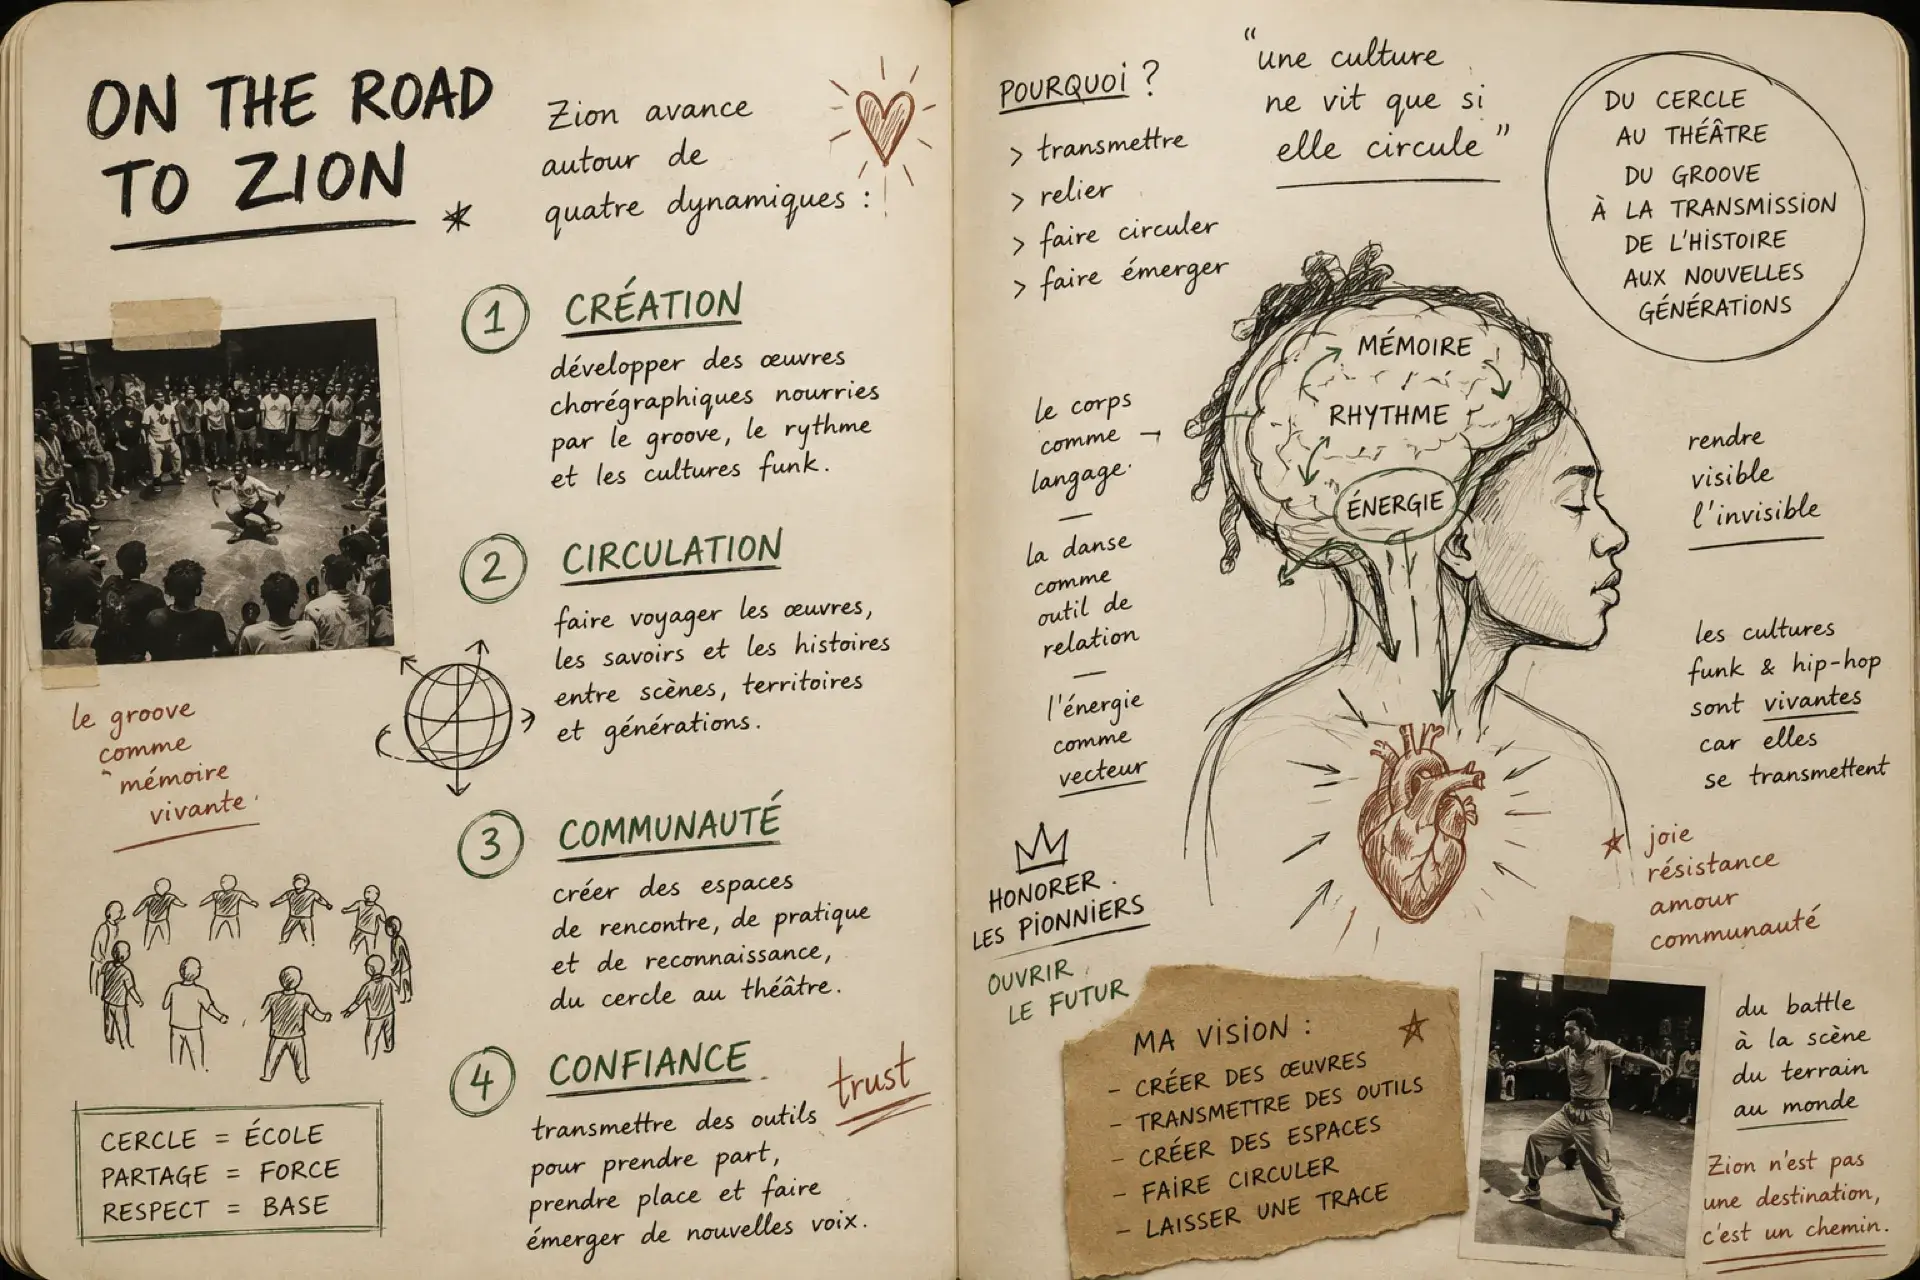 ON THE ROAD
TO ZION
Zion avance
autour de
quatre dynamiques :
1 CRÉATION
développer des œuvres
chorégraphiques nourries
par le groove, le rythme
et les cultures funk.
2 CIRCULATION
faire voyager les œuvres,
les savoirs et les histoires
entre scènes, territoires
et générations.
le groove
comme
mémoire
vivante
3 COMMUNAUTÉ
créer des espaces
de rencontre, de pratique
et de reconnaissance,
du cercle au théâtre.
4 CONFIANCE
trust
transmettre des outils
pour prendre part,
prendre place et faire
émerger de nouvelles voix.
CERCLE = ÉCOLE
PARTAGE = FORCE
RESPECT = BASE
POURQUOI ?
> transmettre
> relier
> faire circuler
> faire émerger
"une culture
ne vit que si
elle circule"
DU CERCLE
AU THÉÂTRE
DU GROOVE
À LA TRANSMISSION
DE L'HISTOIRE
AUX NOUVELLES
GÉNÉRATIONS
MÉMOIRE
RHYTHME
ÉNERGIE
le corps
comme
langage.
—
la danse
comme
outil de
relation
—
l'énergie
comme
vecteur
rendre
visible
l'invisible
les cultures
funk & hip-hop
sont vivantes
car elles
se transmettent
joie
résistance
amour
communauté
HONORER.
LES PIONNIERS
OUVRIR
LE FUTUR
MA VISION :
- CRÉER DES ŒUVRES
- TRANSMETTRE DES OUTILS
- CRÉER DES ESPACES
- FAIRE CIRCULER
- LAISSER UNE TRACE
du battle
à la scène
du terrain
au monde
Zion n'est pas
une destination,
c'est un chemin.